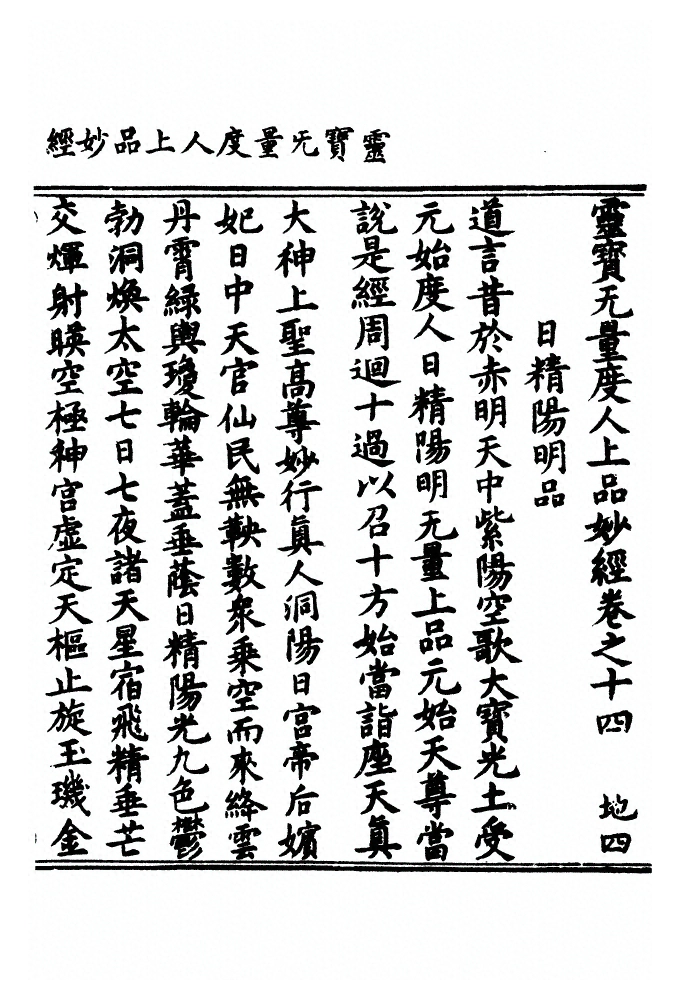 靈寶无量度人上品妙經
靈寶无量度人上品妙經卷之十四 地四
日精陽明品
道言昔於赤明天中紫陽空歌大寶光土受
元始度人日精陽明无量上品元始天尊當
說是經周迴十過以召十方始當詣座天眞
大神上聖高尊妙行眞人洞陽日宮帝后嬪
妃日中天官仙民無鞅數衆乘空而來絳雲
丹霄綠輿瓊輪華蓋垂蔭日精陽光九色鬱
勃洞煥太空七日七夜諸天星宿飛精垂芒
交煇射暎空極神宮虛定天樞止旋玉璣金